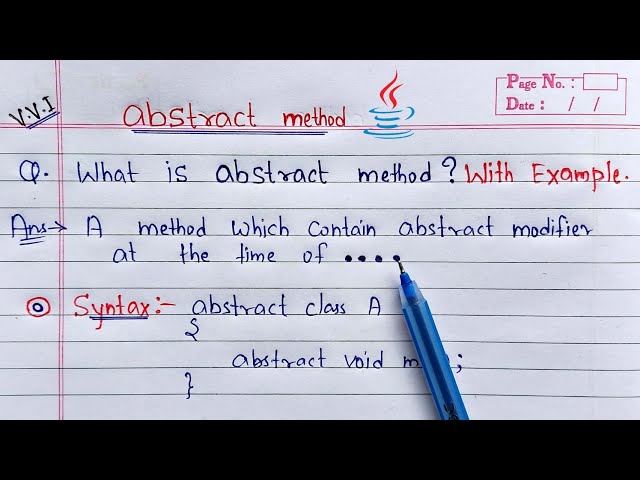 V.V.I
abstract method
Page No. :
Date : / /
Q. What is abstract method? With Example.
Ans→ A method which contain abstract modifier
at the time of ....
Syntax:- abstract class A
{
abstract void ;
}